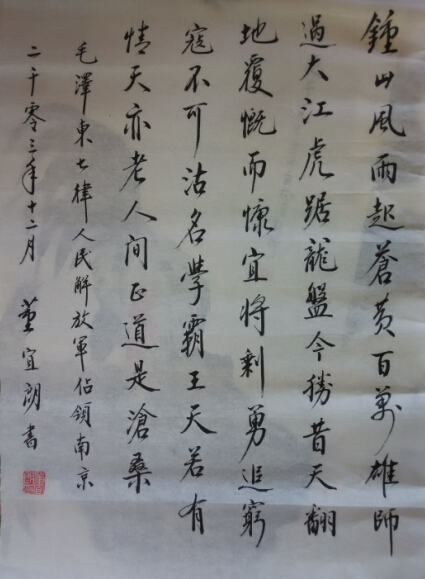 鍾山風雨起蒼黃百萬雄師
過大江虎踞龍盤今勝昔天翻
地覆慨而慷宜將剩勇追窮
寇不可沽名學霸王天若有
情天亦老人間正道是滄桑
毛澤東七律人民解放軍佔領南京
二千零三年十二月 董宜朗書